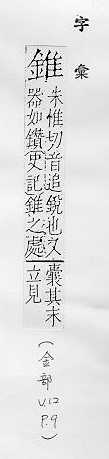 字彙
錐
朱惟切音追銳也又
器如鑽史記錐之處
囊其末
立見
(金部
V.12
P.9)